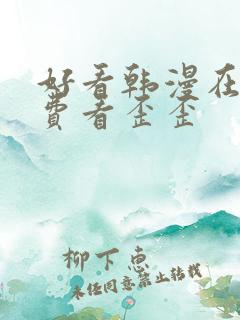 好看韩漫在
费看歪歪
柳下惠
未经同意禁止转载